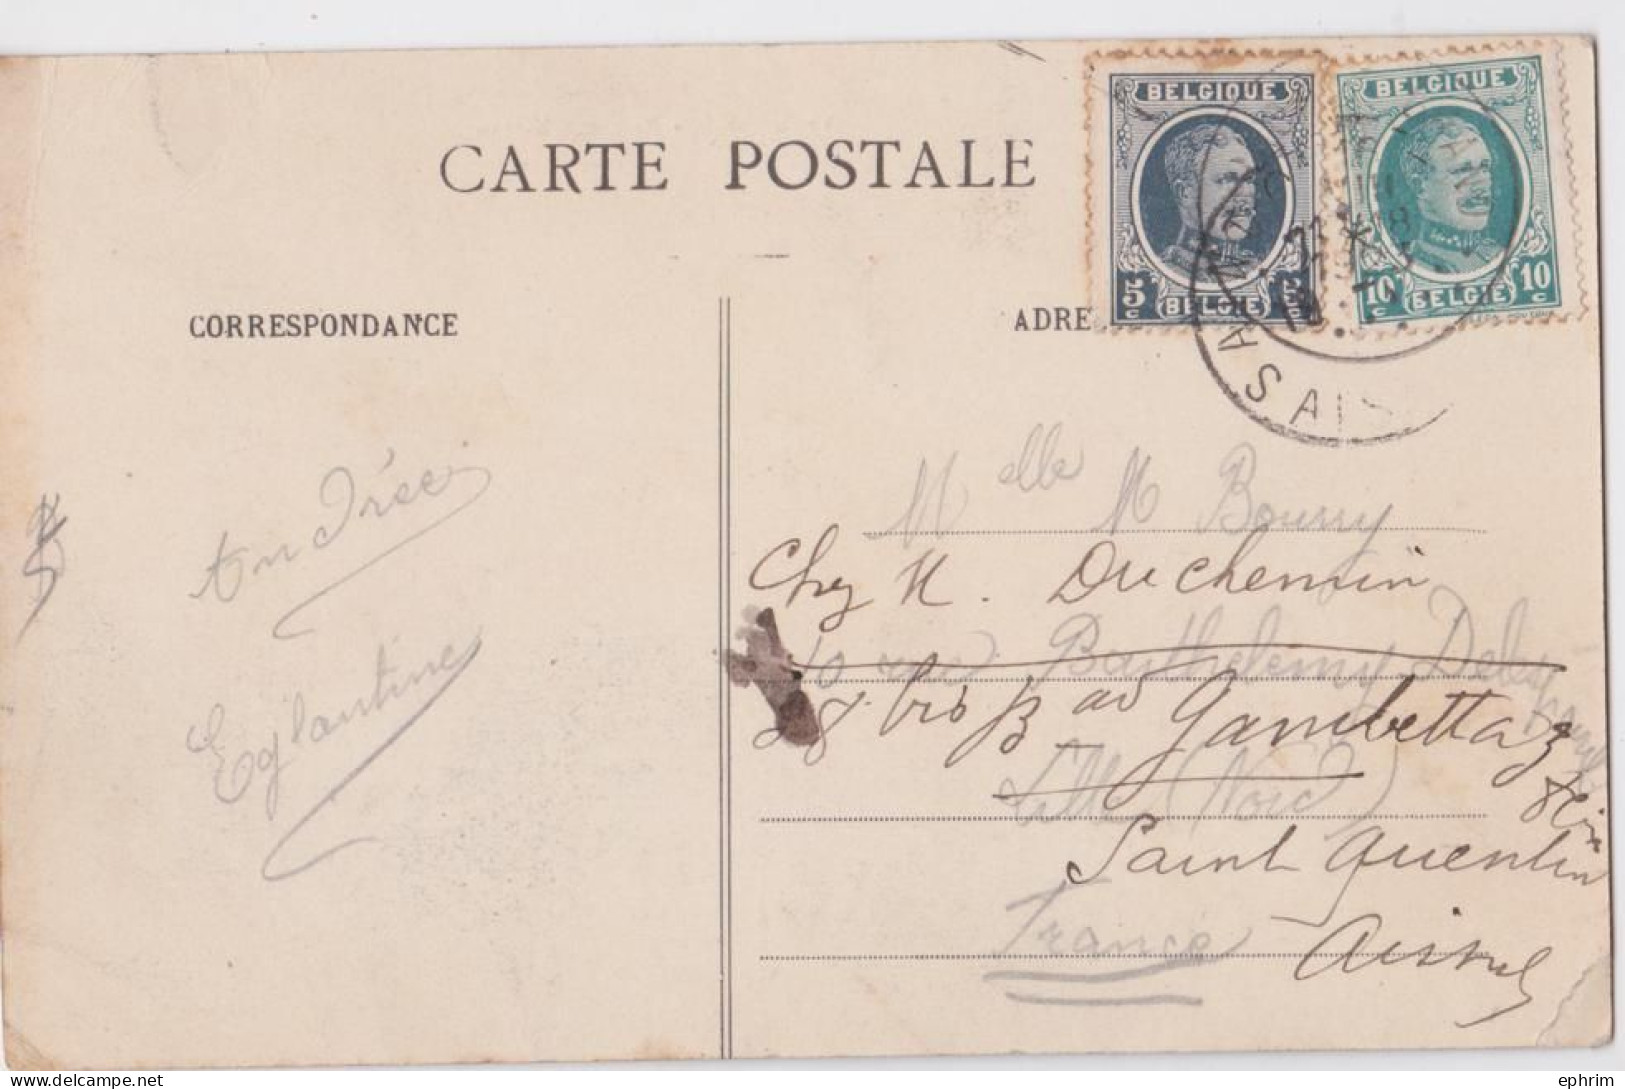 CARTE POSTALE
BELGIQUE
5c 5c
BELGIE
BELGIQUE
10c 10c
BELGIE
CORRESPONDANCE
ADRE
SAI
Andrée
Eglantine
Melle M Bourry
Chez M. Duchemin
rue Barthelemy Delespaul
bis Bard Gambetta
Lille (Nord)
Saint Quentin
France
Aisne
ephrim
delcampe.net